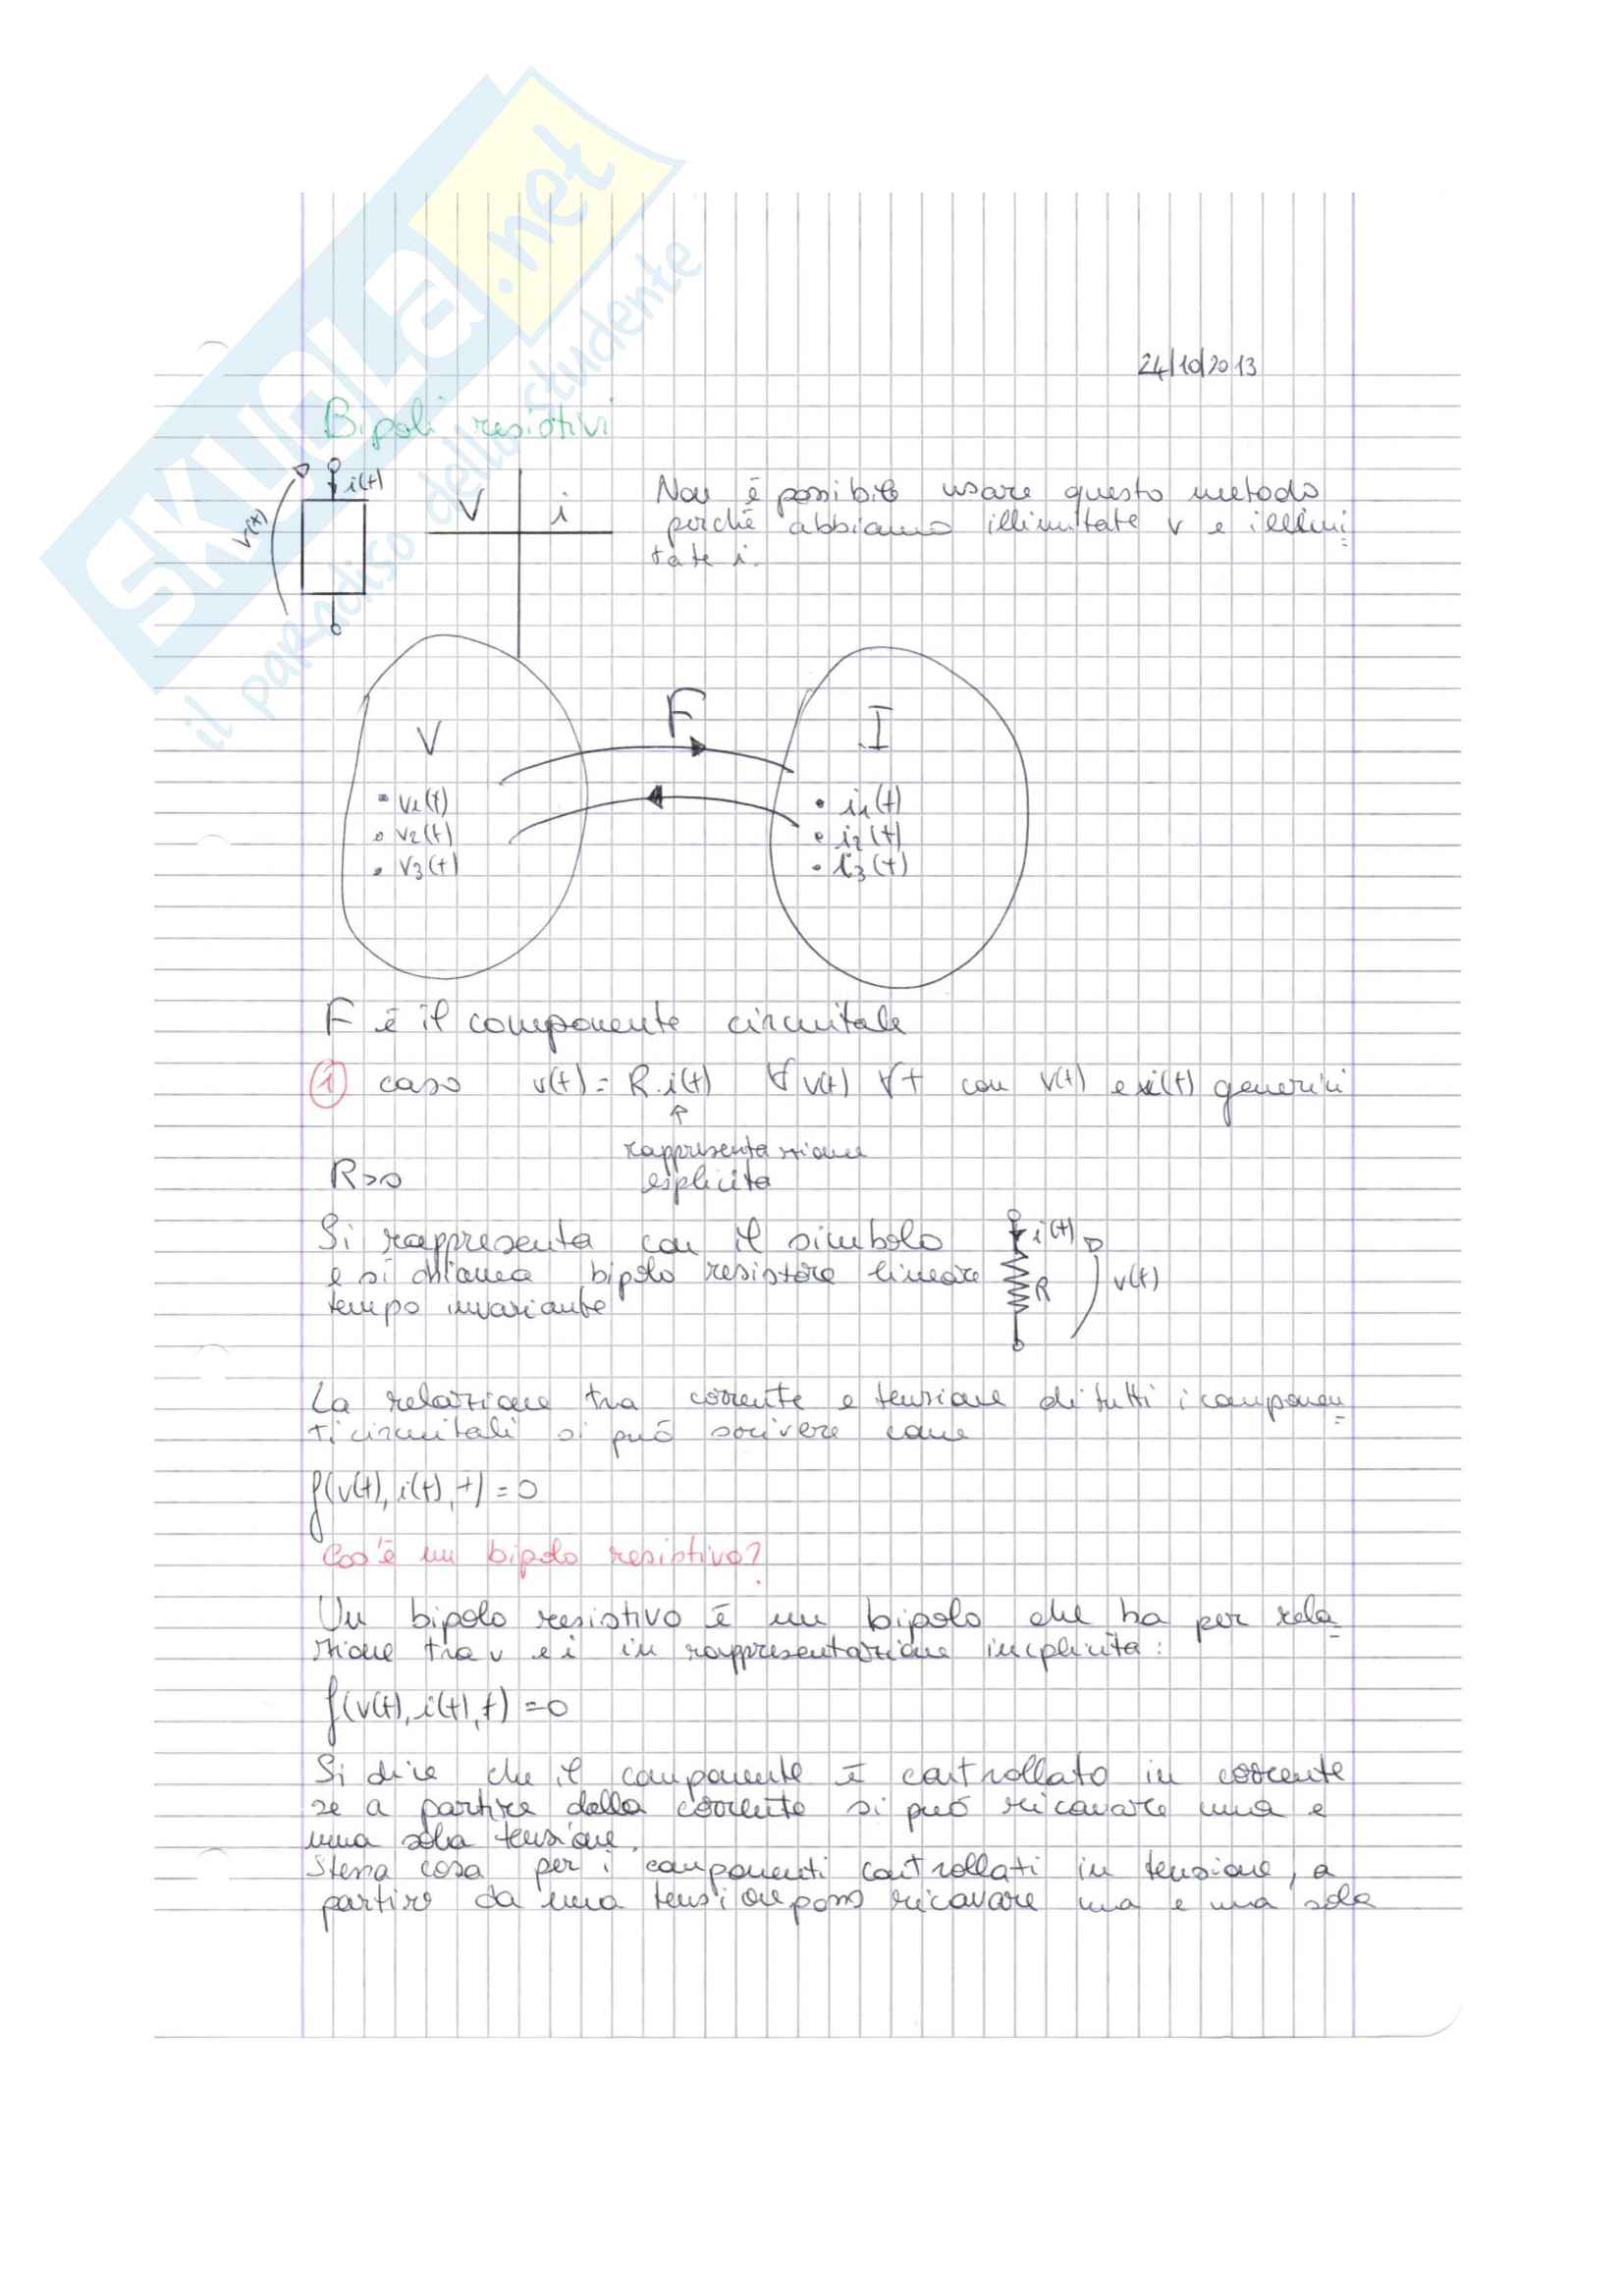 SKUOLA.net
il paradiso dello studente
24/10/2013
Bipoli resistivi
i(t)
v(t)
V i
Non è possibile usare questo metodo
perché abbiamo illimitate v e illimi
tate i.
F
V
I
v1(t)
v2(t)
v3(t)
i1(t)
i2(t)
i3(t)
F è il componente circuitale
1 caso v(t) = R·i(t) ∀ v(t) ∀t con v(t) e i(t) generici
rappresentazione
esplicita
R>0
Si rappresenta con il simbolo
e si chiama bipolo resistore lineare
tempo invariante
i(t)
R
v(t)
La relazione tra corrente e tensione di tutti i componen
ti circuitali si può scrivere come
f(v(t), i(t), t) = 0
Cos'è un bipolo resistivo?
Un bipolo resistivo è un bipolo che ha per rela
zione tra v e i in rappresentazione implicita:
f(v(t), i(t), t) = 0
Si dice che il componente è controllato in corrente
se a partire dalla corrente si può ricavare una e
una sola tensione.
Stessa cosa per i componenti controllati in tensione, a
partire da una tensione posso ricavare una e una sola